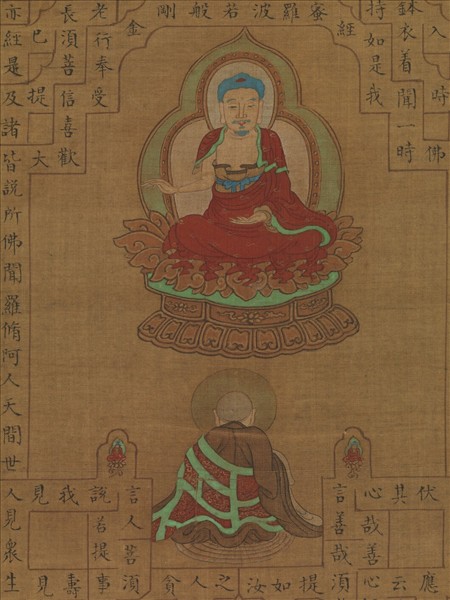 金剛般若波羅蜜經
入時佛
鉢衣着聞一時
持如是我
老行奉受
長須菩信喜歡
已提大
亦經是及諸皆說所佛聞羅脩阿人天間世人見衆生
伏應
其云
心哉善心
言善哉須
提如汝之人貪
言人菩須
說名提事
我壽
見見